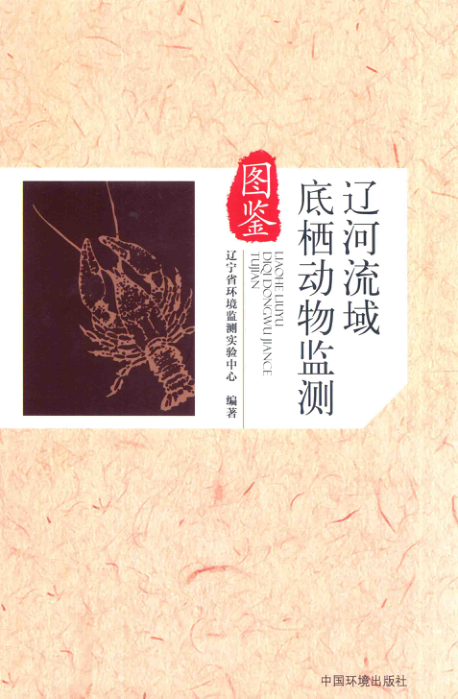 辽河流域
底栖动物监测
图鉴
LIAOHE LIUYU
DIQI DONGWU JIANCE
TUJIAN
辽宁省环境监测实验中心 编著
中国环境出版社